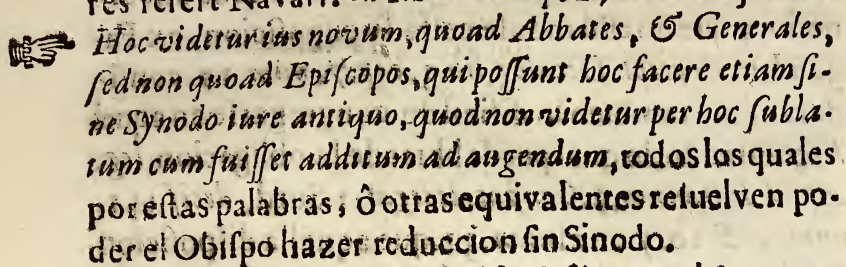 res refert Navarr.
Hoc videtur ius novum, quoad Abbates, & Generales,
ſed non quoad Epiſcopos, qui poſſunt hoc facere etiam ſi-
ne Synodo iure antiquo, quod non videtur per hoc ſubla-
tum cum fuiſſet additum ad augendum, todos los quales
por eſtas palabras, ò otras equivalentes reſuelven po-
der el Obiſpo hazer reduccion ſin Sinodo.